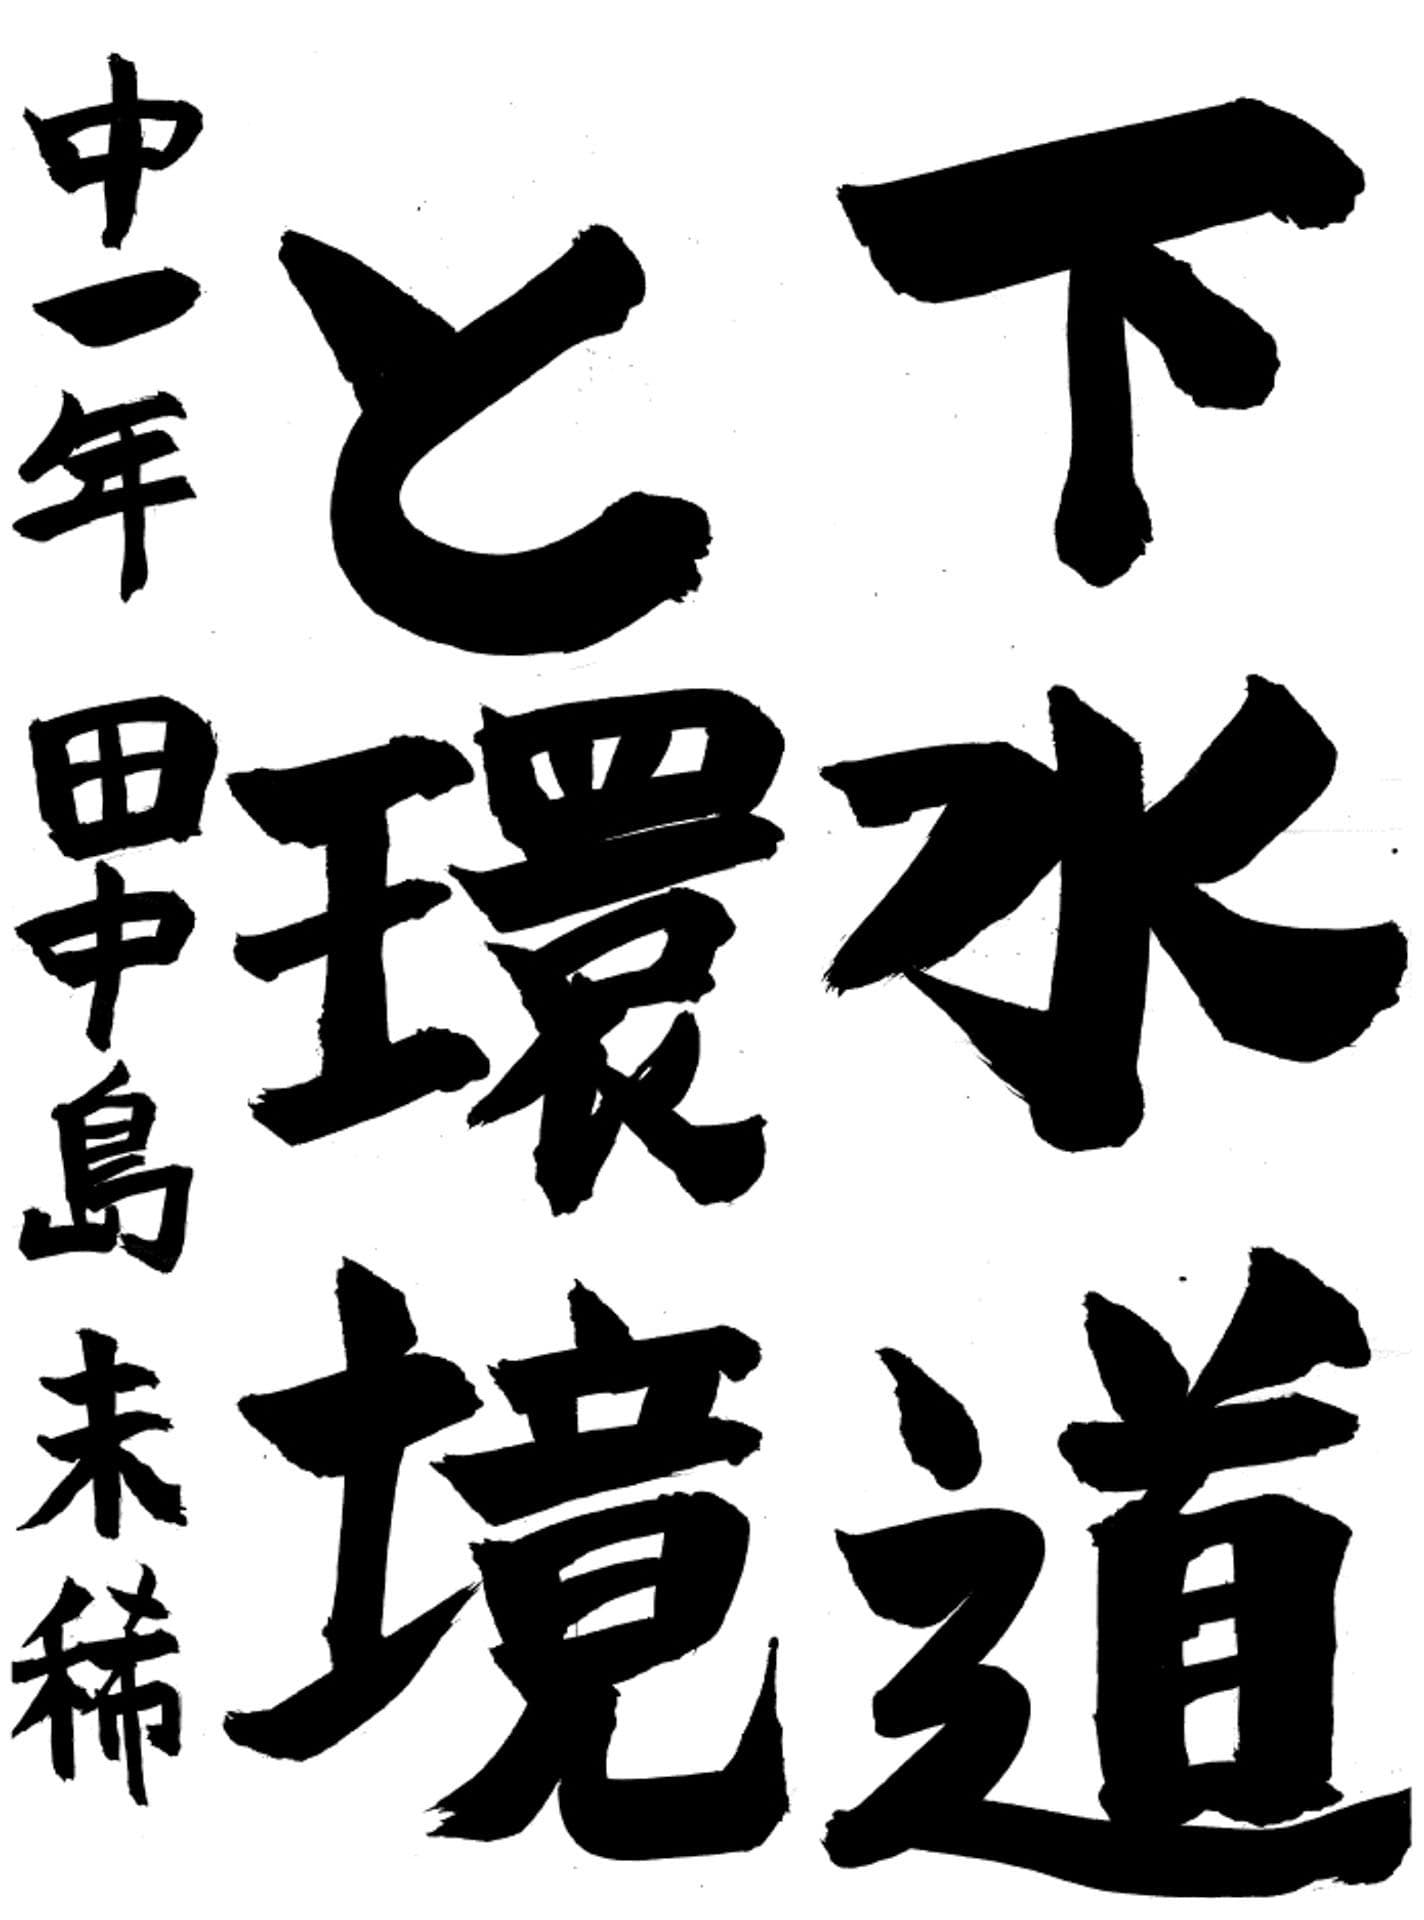 下水道
と環境
中一年 田中島 未稀